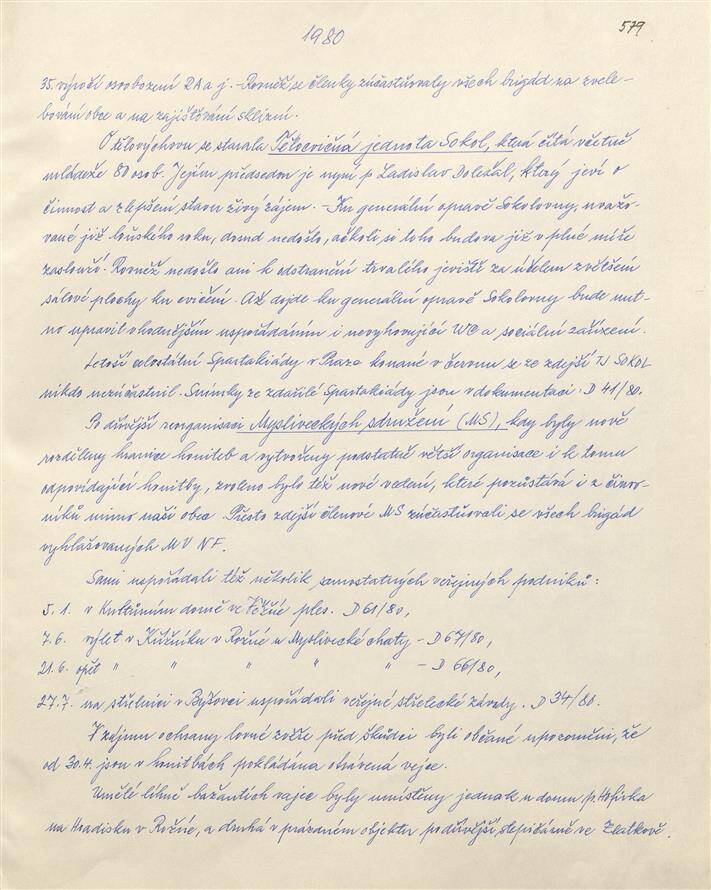 1980
579
35. výročí osvobození RA a j. - Rovněž se členky zúčastňovaly všech brigád za zvele-
bování obce a na zajišťování sklizní.
O tělovýchovu se starala Tělocvičná jednota Sokol, která čítá včetně
mládeže 80 osob. Jejím předsedou je nyní p. Ladislav Doležal, který jeví o
činnost a zlepšení stavu živý zájem. - Ku generální opravě Sokolovny, uvažo-
vané již loňského roku, dosud nedošlo, ačkoli si toho budova již v plné míře
zaslouží. Rovněž nedošlo ani k odstranění trvalého jeviště za účelem zvětšení
sálové plochy ku cvičení. Až dojde ku generální opravě Sokolovny bude nut-
no upravit vhodnějším uspořádáním i nevyhovující WC a sociální zařízení.
Letoší celostátní Spartakiády v Praze konané v červnu se ze zdejší TJ SOKOL
nikdo nezúčastnil. Snímky ze zdařilé Spartakiády jsou v dokumentaci. D 41/80.
Po dřívější reorganisaci Mysliveckých sdružení (MS), kdy byly nově
rozděleny hranice honiteb a vytvořeny podstatně větší organisace i k tomu
odpovídající honitby, zvoleno bylo též nové vedení, které pozůstává i z činov-
níků mimo naši obec. Přesto zdejší členové MS zúčastňovali se všech brigád
vyhlašovaných MV NF.
Sami uspořádali též několik samostatných veřejných podniků:
5.1. v Kulturním domě ve Věžné ples. D 61/80,
7.6. výlet v Kužníku v Rožné u Myslivecké chaty - D 67/80,
21.6. opět " " " " " - D 66/80,
27.7. na střelnici v Byšovci uspořádali veřejné střelecké závody. D 34/80.
V zájmu ochrany lovné zvěře před škůdci byli občané upozorněni, že
od 30.4. jsou v honitbách pokládána otrávená vejce.
Umělé líhně bažantích vajec byly umístěny jednak u domu p. Hofírka
na Hradisku v Rožné, a druhá v prázdném objektu podůvější slepičárně ve Zlatkově.